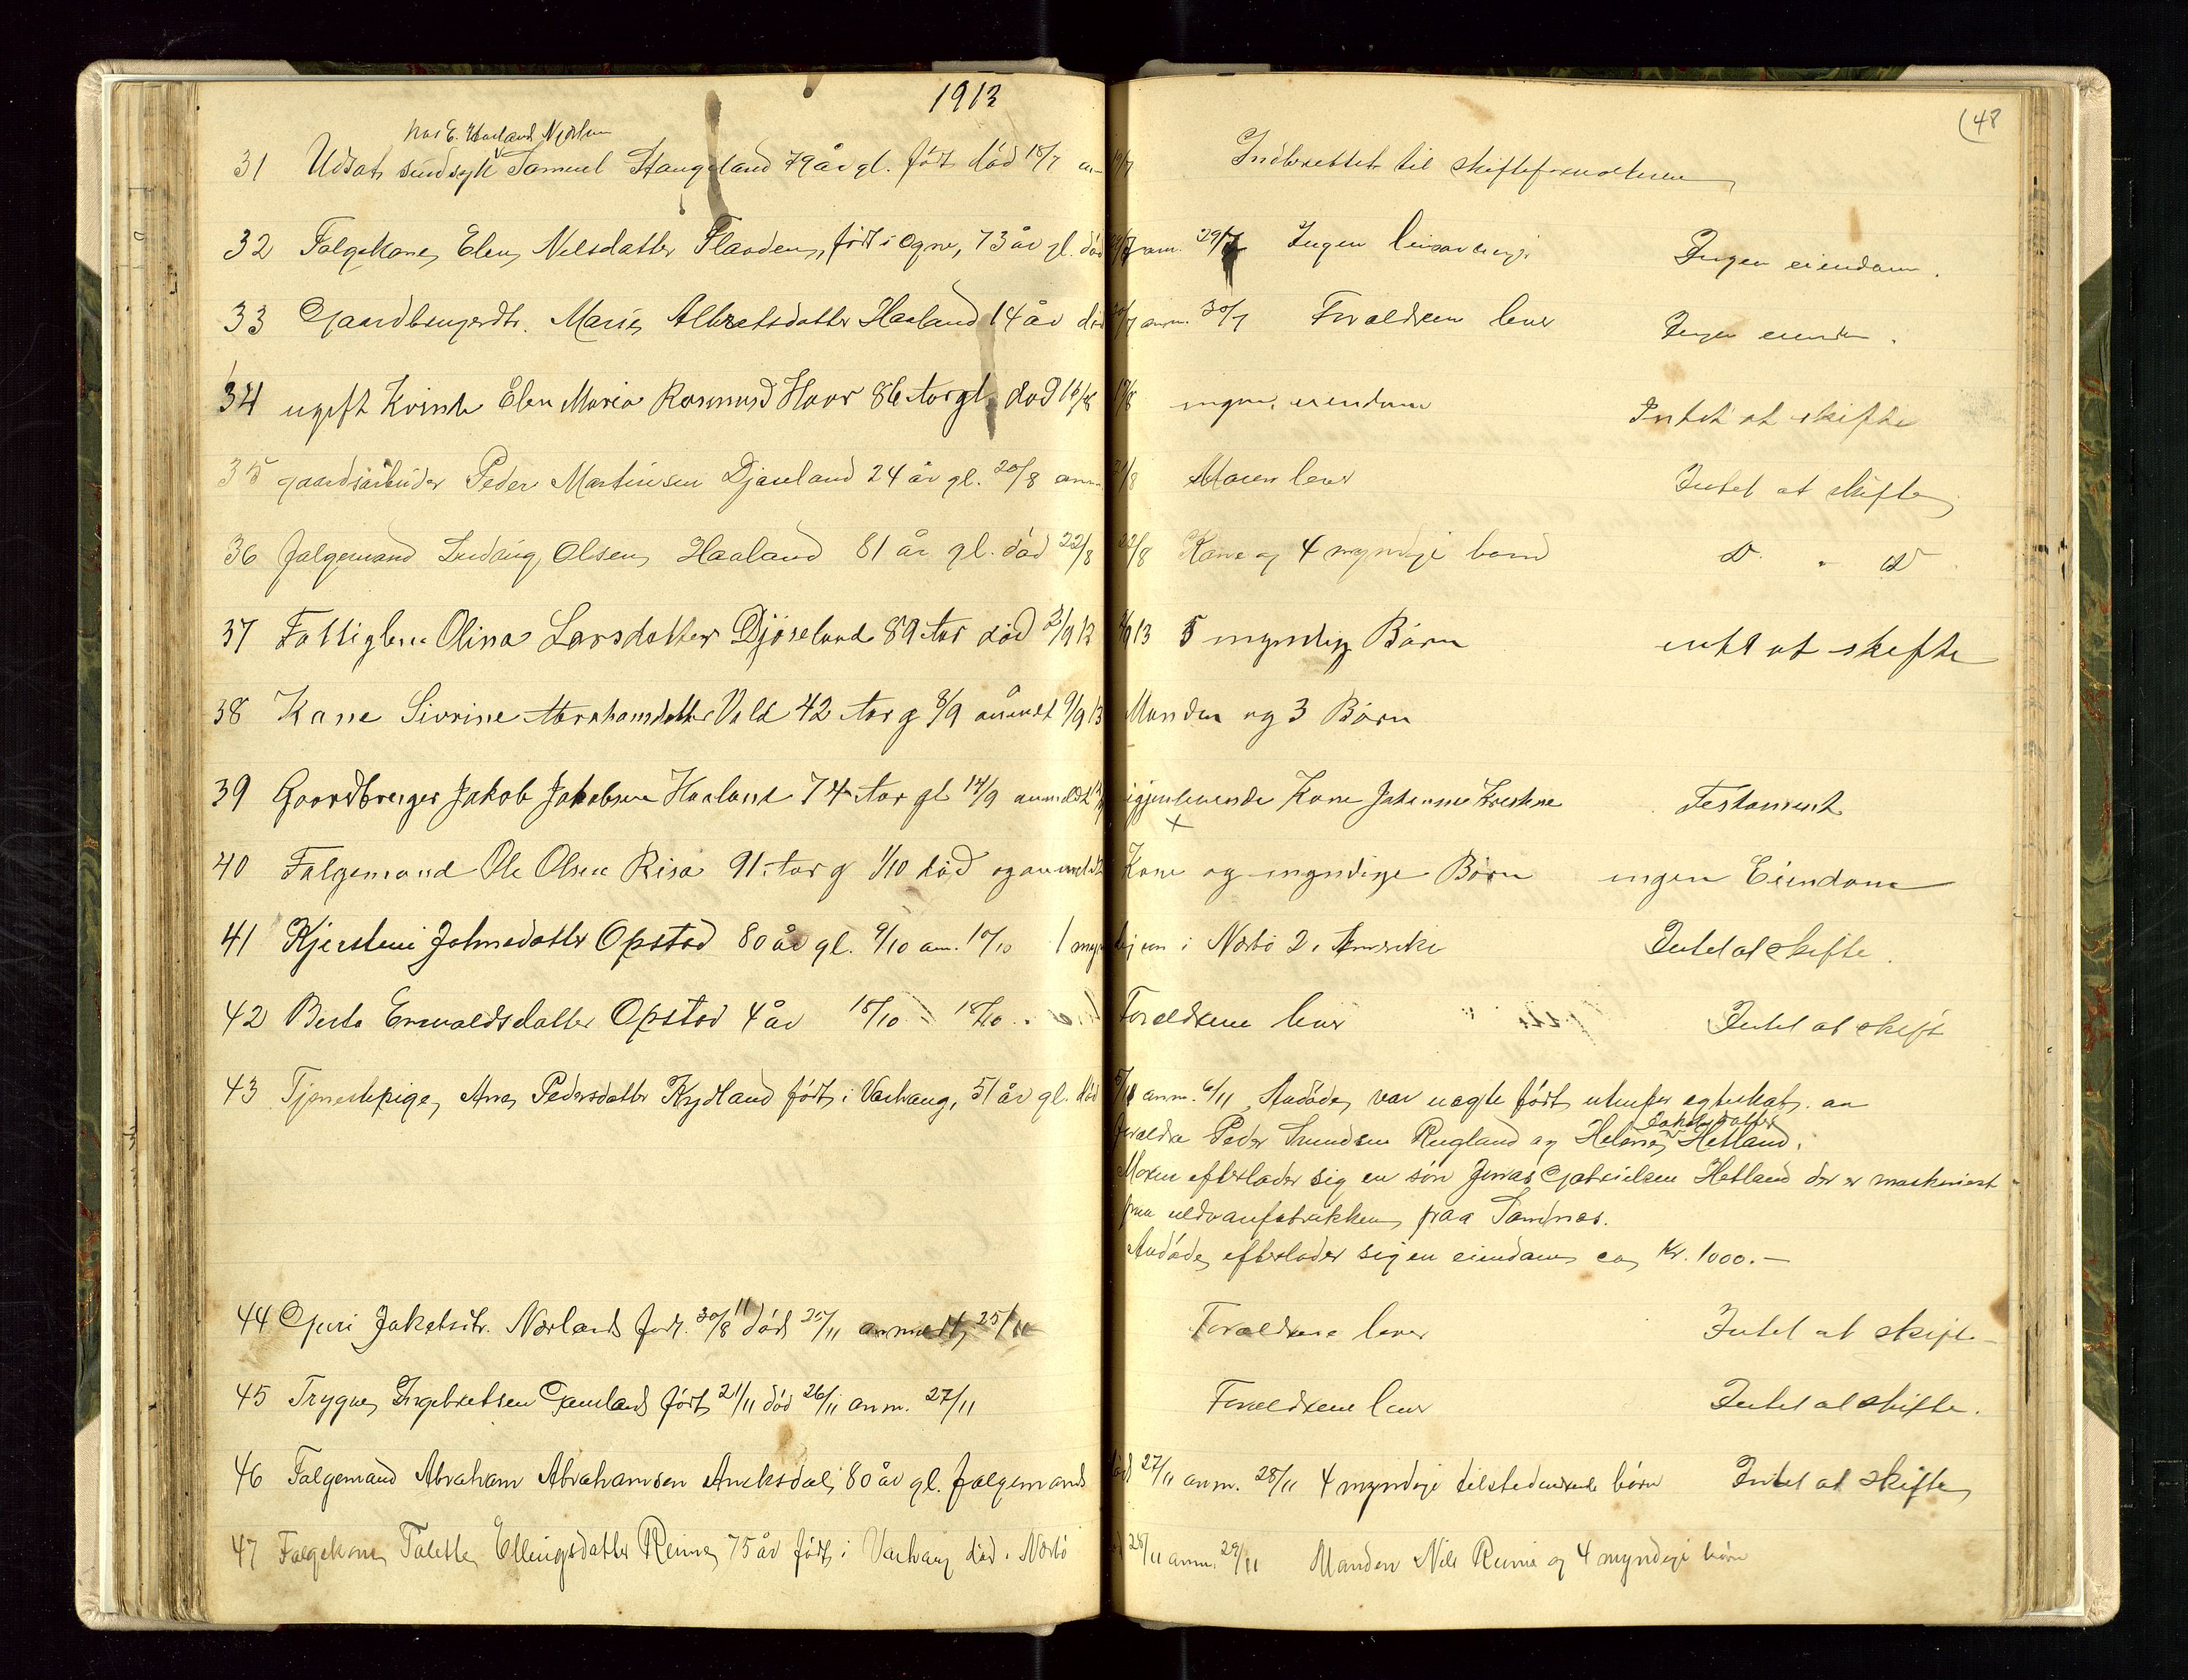 1913
(48
hos E. Haaland Nærbø
31 Udsat sindsyk Samuel Haugland 79 år gl. født død 18/7 an- 19/7 Indberettet til skifteforvalteren
32 Folgekone Elen Nilsdatter født i Ogne, 73 år gl. død 29/7 anm. 29/7 Ingen livsarvinger Ingen eiendom.
33 Gaardbrugerdtr. Marie Albretsdatter Haaland 14 år død 30/7 anm. 30/7 Foraldrene lever Ingen eiendom.
34 ugift Kvinde Elen Maria Rasmusd Haar 86 Aar gl. død 16/8 17/8 ingen eiendom Intet at skifte
35 gaardsarbeider Peder Martinsen Djøseland 24 år gl. 20/8 anm. 21/8 Moren lever Intet at skifte
36 Folgemand Ludvig Olsen Haaland 81 år gl. død 22/8 22/8 Kone og 4 myndige børn D. " D
37 Fattiglem Olina Larsdatter Djøseland 89 Aar død 3/9 13 5 myndig Børn intet at skifte
38 Kone Sivrine Abrahamsdatter Vold 42 Aar g 8/9 anmeldt 9/9 13 Manden og 3 Børn
39 Gaardbruger Jakob Jakobsen Haaland 74 Aar gl 14/9 anmeldt igjenlevende Kone Johanne Kristine Testament
x
40 Folgemand Ole Olsen Risa 91 Aar g 1/10 død og anmeldt Kone og myndige Børn ingen Eiendom
41 Kjersteni Johnsdatter Opstad 80 år gl. 9/10 am. 10/10 1 myndig en i Nærbø 2 i Amerika Intet at skifte.
42 Berta Enevaldsdatter Opstad 4 år 18/10 - 18/10. Foreldrene lever Intet at skift
43 Tjenestepige, Ane Pedersdatter Kydland født i Varhaug, 51 år gl. død 5/11 anm. 6/11, Avdøde var uegte født utenfor egteskab av
Jakobsdatter
foreldre Peder Svendsen Rugland og Helene Hetland.
Moren efterlader sig en søn Jonas Gabrielsen Hetland der er maskinist
paa uldvarefabrikken paa Sandnes.
Avdøde efterlader sig en eiendom ca Kr. 1000.-
44 Guri Jakobsdtr. Nærland født 30/8 11 død 25/11 anmeldt 25/11 Foreldrene lever Intet at skifte
45 Trygve Ingebretsen Gauland født 21/11 død 26/11 anm. 27/11 Foreldrene lever Intet at skifte.
46 Folgemand Abraham Abrahamsen Aniksdal 80 år gl. folgemand død 27/11 anm. 28/11 4 myndige tilstedeværende børn Intet at skifte
47 Folgekone Talette Ellingsdatter Reime 75 år født i Varhaug død i Nærbø 28/11 anm. 29/11 Manden Nils Reime og 4 myndige børn